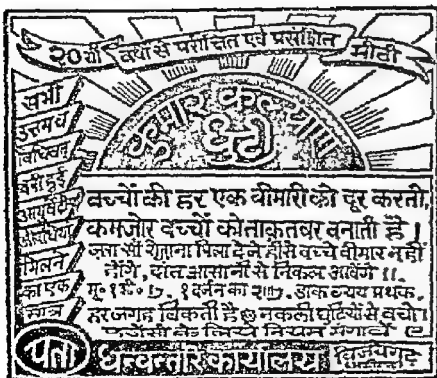 २०वर्षो वर्षों से परीक्षित एवं प्रशंसित मीठी
कुमार कल्याण
घुटी
सभी
उत्तम व
विधिवत
बनी हुई
आयुर्वेदीय
औषधियां
मिलने
का एक
स्थान
बच्चों की हर एक बीमारी को दूर करती,
कमजोर बच्चों को ताकतवर बनाती है।
जरा सी रोजाना पिला देने ही से बच्चे बीमार नहीं
होंगे, दांत आसानी से निकल आवेंगे ॥
मू० १ शी० ।७. १ दर्जन का २॥७. डाक व्यय प्रथक.
हर जगह बिकती है नकली घुटियों से बचो।
एजेंसी के लिये नियम मंगावें
पता धन्वन्तरि कार्यालय विजयगढ़